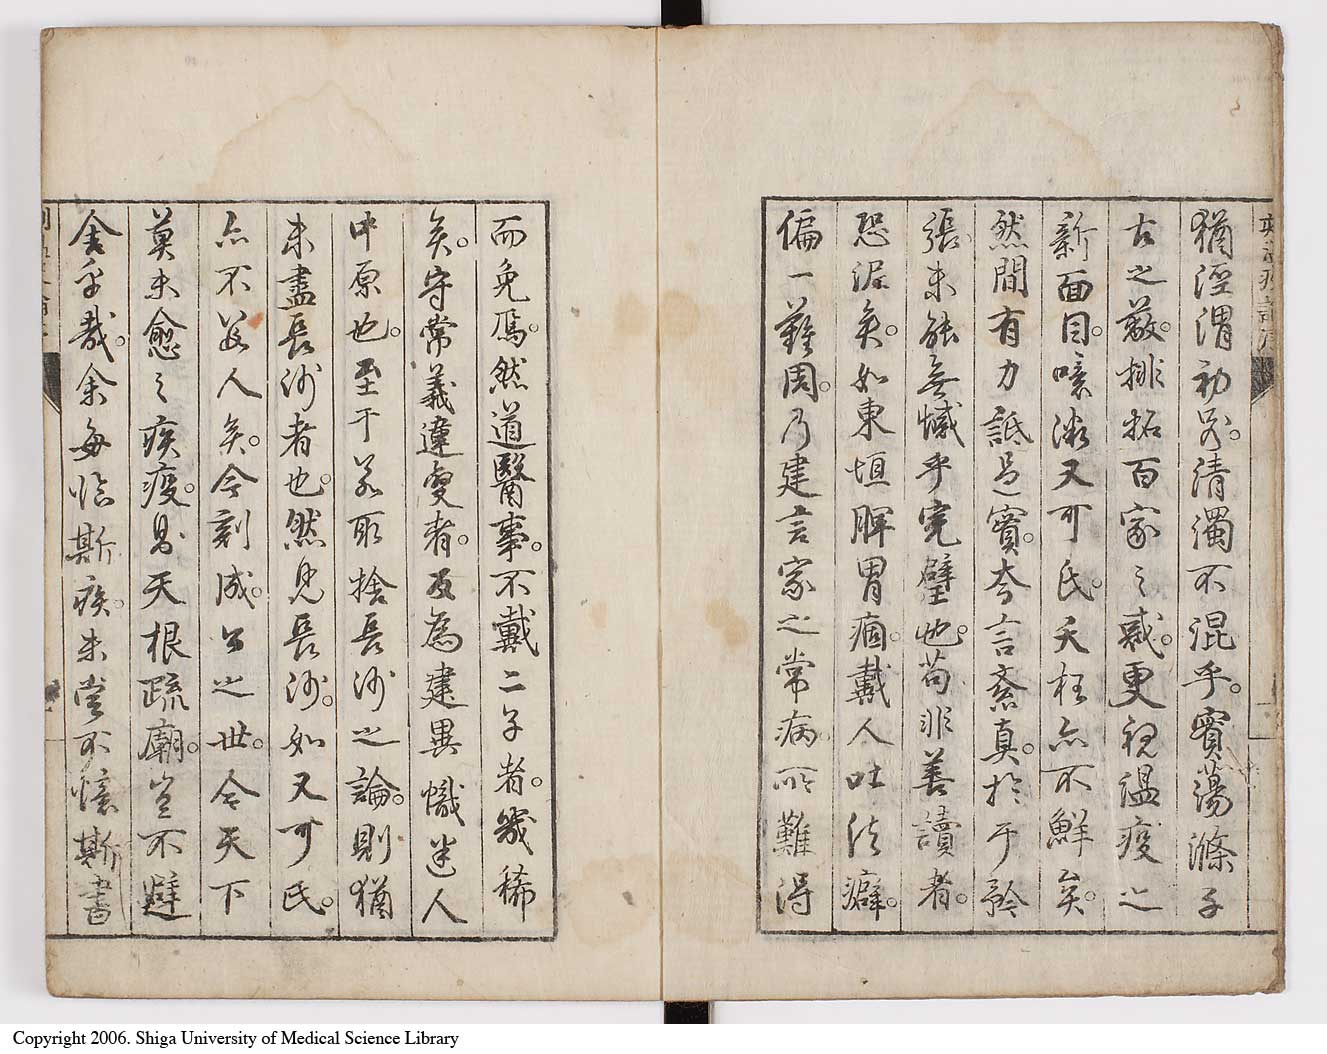 猶涇渭初分。清濁不混乎。實蕩滌千
古之蔽。排拓百家之惑。更視溫疫之
新面目。噫微又可氏。夭枉亦不鮮矣。
然間有力詆過實。夸言紊真。於乎矜
張未能無憾乎完璧也。苟非善讀者。
恐泥矣。如東垣脾胃痼。戴人吐法癖。
偏一難周。乃建言家之常病。所難得
而免焉。然道醫事。不戴二子者。幾稀
矣。守常義達變者。及為建異幟迷人
中原也。至于若取捨長沙之論。則猶
未盡長沙者也。然見長沙。如又可氏。
亦不多人矣。今刻成。公之世。令天下
莫未愈之疾疫。曷天根疏廟。豈不韙
舍乎哉。余每臨斯疾。未嘗不懷斯書